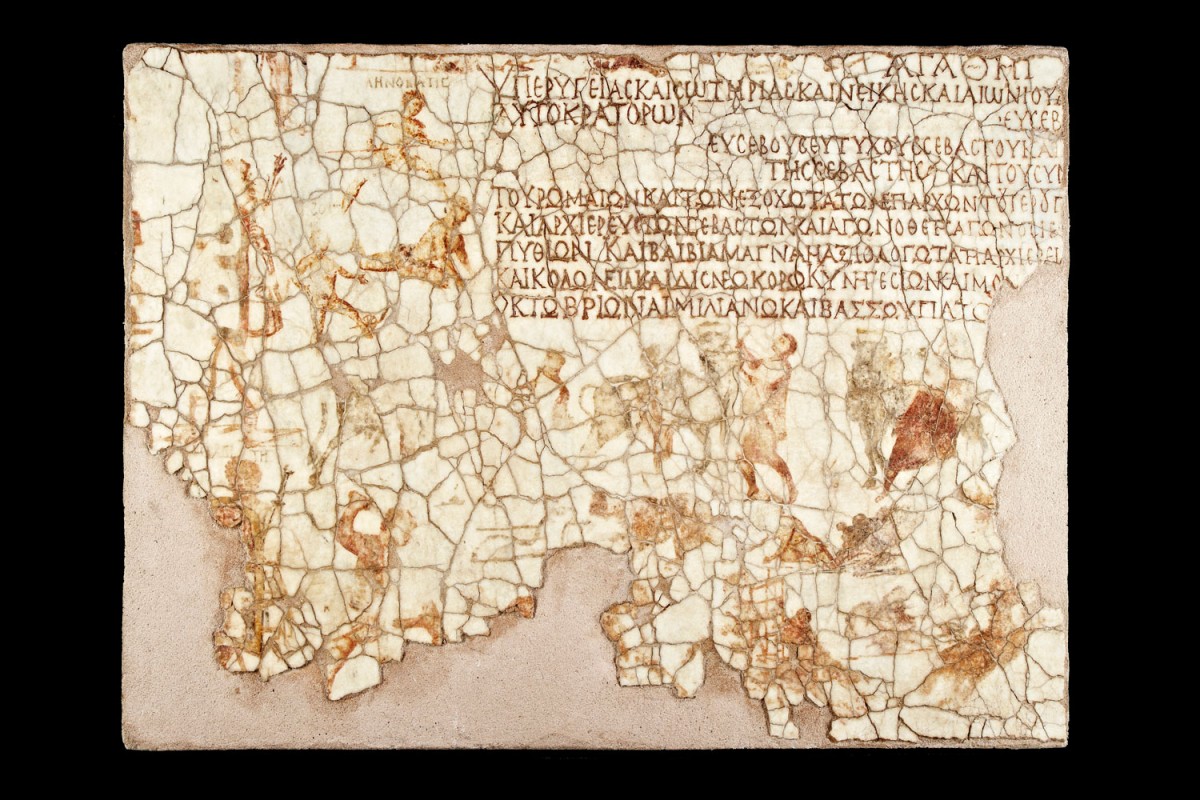 ΑΓΑΘΗΙ
ΥΠΕΡΥΓΕΙΑΣΚΑΙΣΩΤΗΡΙΑΣΚΑΙΝΕΙΚΗΣΚΑΙΑΙΩΝΙΟΥΔ
ΑΥΤΟΚΡΑΤΟΡΩΝ ΕΥΣΕΒ
ΕΥΣΕΒΟΥΣΕΥΤΥΧΟΥΣΣΕΒΑΣΤΟΥΚΑΙ
ΤΗΣΣΕΒΑΣΤΗΣ ΚΑΙΤΟΥΣΥΜ
ΤΟΥΡΩΜΑΙΩΝΚΑΙΤΩΝΕΞΟΧΩΤΑΤΩΝΕΠΑΡΧΩΝΤΟΥΙΕΡΟΥ
ΚΑΙΑΡΧΙΕΡΕΥΣΤΩΝΣΕΒΑΣΤΩΝΚΑΙΑΓΩΝΟΘΕΤΗΣ
ΠΥΘΙΩΝ ΚΑΙΒΑΙΒΙΑΜΑΓΝΑΗΑΞΙΟΛΟΓΩΤΑΤΗΑΡΧΙΕΡΕΙ
ΚΑΙΚΟΛΩΝΕΙΑΚΑΙΔΙΣΝΕΩΚΟΡΩΚΥΝΗΓΕΣΙΩΝΚΑΙΜΟ
ΟΚΤΩΒΡΙΩΝΑΙΜΙΛΙΑΝΩΚΑΙΒΑΣΣΟΥΠΑΤΟ